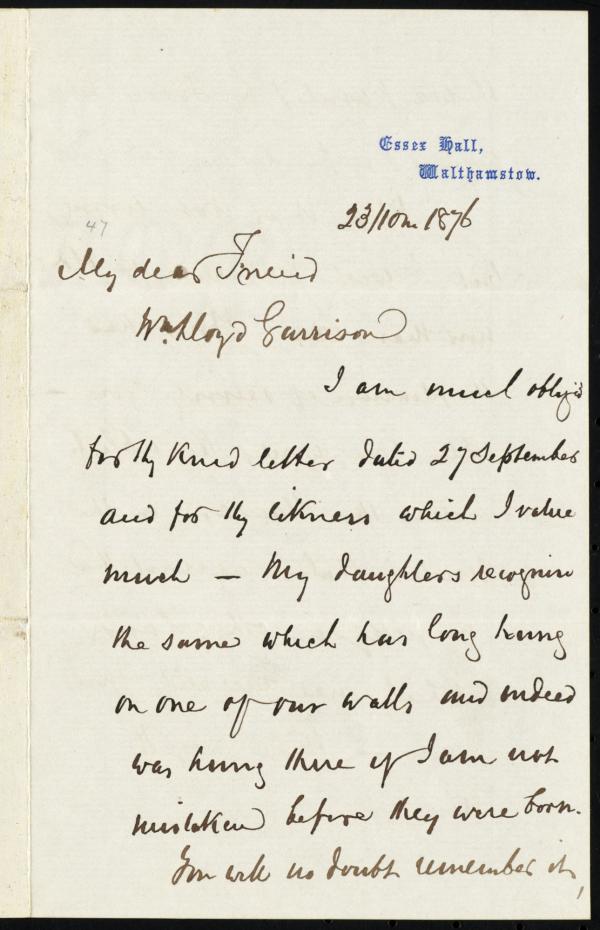 Essex Hall,
Walthamstow.
23/10m 1876
47
My dear Friend
Wm. Lloyd Garrison
I am much oblig'd
for thy kind letter dated 27 September
and for thy likness which I value
much — My daughters recognise
the same which has long hung
on one of our walls and indeed
was hung there if I am not
mistaken before they were born.
You will no doubt remember it,